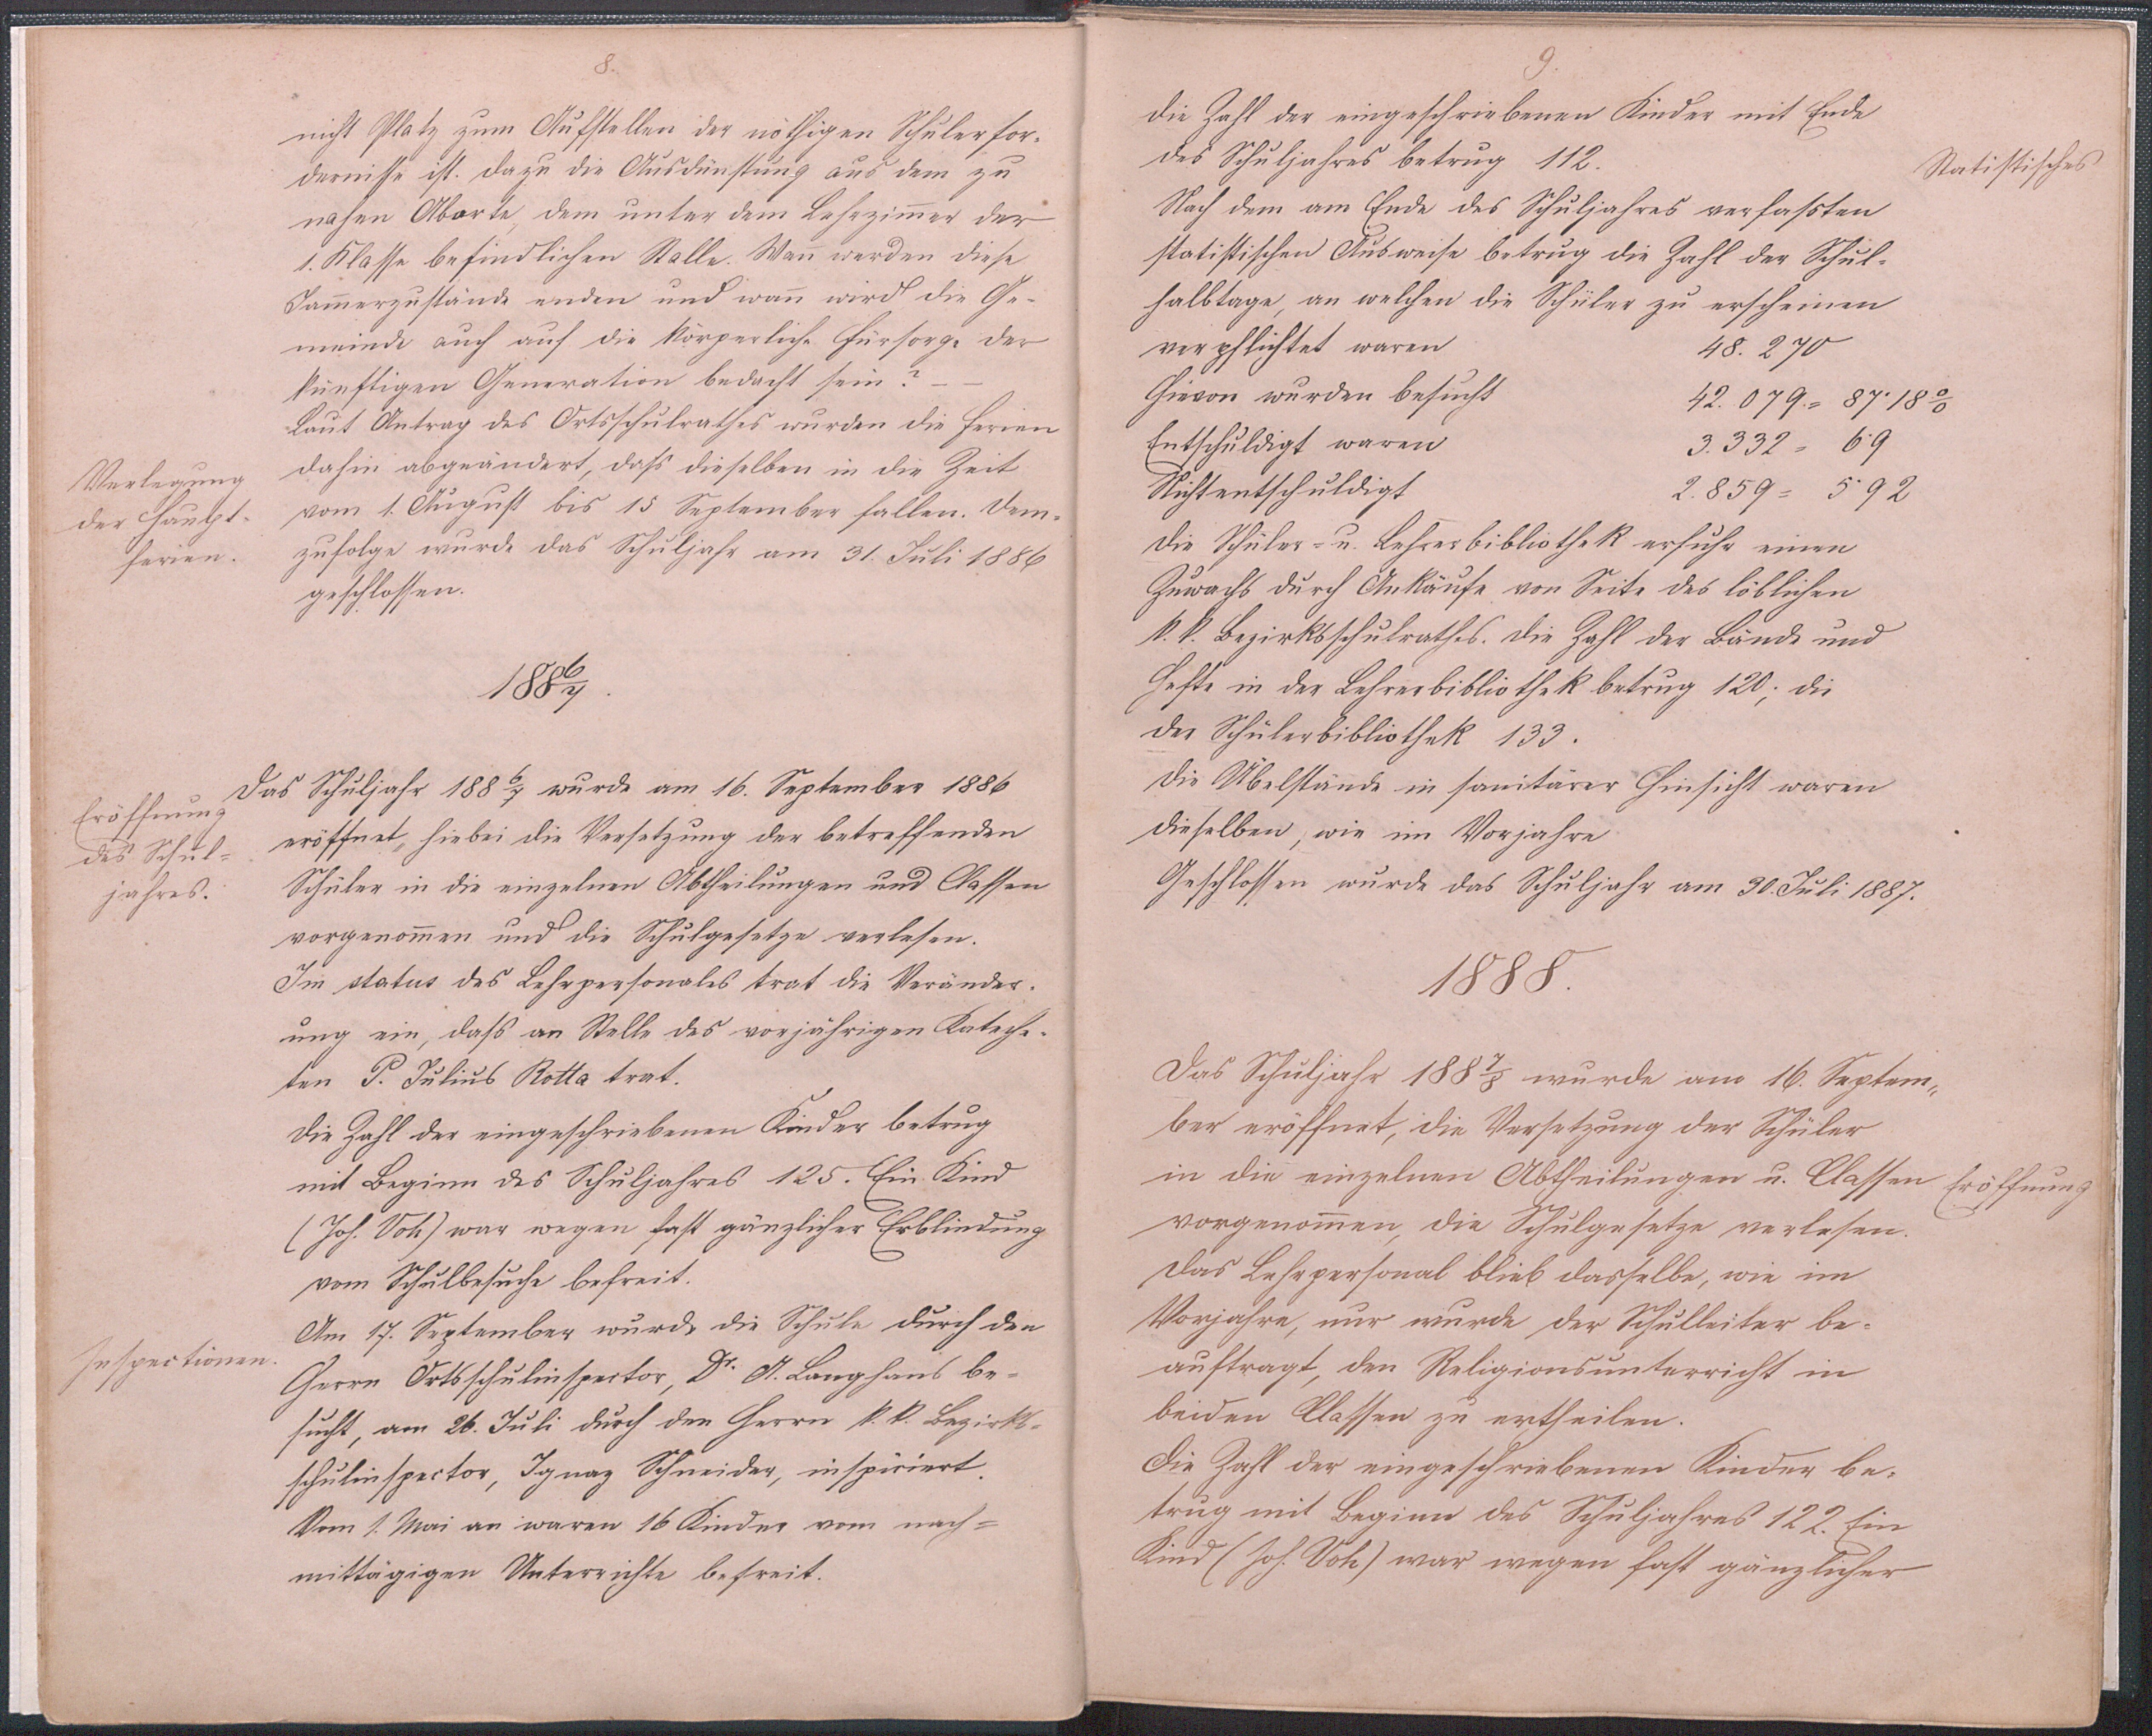 8.
nicht Platz zum Aufstellen der nöthigen Schulerfor-
dernisse ist. Dazu die Ausdünstung aus dem zu
nahen Aborte, dem unter dem Lehrzimer der
1. Klasse befindlichen Stalle. Wan werden diese
Jamerzustände enden und wan wird die Ge-
meinde auch auf die körperliche Fürsorge der
künftigen Generation bedacht sein? – –
Laut Antrag des Ortsschulrathes wurden die Ferien
Verlegung
der Haupt-
ferien.
dahin abgeändert, daß dieselben in die Zeit
vom 1. August bis 15 September fallen. Dem-
zufolge wurde das Schuljahr am 31. Juli 1886
geschlossen.
1886/7.
Das Schuljahr 1886/7 wurde am 16. September 1886
Eröffnung
des Schul-
jahres.
eröffnet, hiebei die Versetzung der betreffenden
Schüler in die einzelnen Abtheilungen und Classen
vorgenomen und die Schulgesetze verlesen.
Im status des Lehrpersonales trat die Veränder-
ung ein, daß an Stelle des vorjährigen Kateche-
ten P. Julius Rotta trat.
Die Zahl der eingeschriebenen Kinder betrug
mit Beginn des Schuljahres 125. Ein Kind
(Joh. ) war wegen fast gänzlicher Erblindung
vom Schulbesuche befreit.
Am 17. September wurde die Schule durch den
Inspectionen.
Herrn Ortsschulinspector, Dr. A. Langhans be-
sucht, am 26. Juli durch den Herrn k. k. Bezirks-
schulinspector, Ignaz Schneider, inspiciert.
Vom 1. Mai an waren 16 Kinder vom nach-
mittägigen Unterrichte befreit.
9.
Die Zahl der eingeschriebenen Kinder mit Ende
des Schuljahres betrug 112.
Statistisches
Nach dem am Ende des Schuljahres verfaßten
statistischen Ausweise betrug die Zahl der Schul-
halbtage, an welchen die Schüler zu erscheinen
verpflichtet waren 48.270
Hievon wurden besucht 42.079 = 87·18%
Entschuldigt waren 3.332 = 6·9
Nichtentschuldigt 2.859 = 5·92
Die Schüler- u. Lehrerbibliothek erfuhr einen
Zuwachs durch Ankäufe von Seite des löblichen
k. k. Bezirksschulrathes. Die Zahl der Bände und
Hefte in der Lehrerbibliothek betrug 120; die
der Schülerbibliothek 133.
Die Übelstände in sanitärer Hinsicht waren
dieselben, wie im Vorjahre
Geschlossen wurde das Schuljahr am 30. Juli 1887.
1888.
Das Schuljahr 1887/8 wurde am 16. Septem-
ber eröffnet, die Versetzung der Schüler
in die einzelnen Abtheilungen u. Classen
Eröffnung
vorgenomen, die Schulgesetze verlesen.
Das Lehrpersonal blieb dasselbe, wie im
Vorjahre, nur wurde der Schulleiter be-
auftragt, den Religionsunterricht in
beiden Classen zu ertheilen.
Die Zahl der eingeschriebenen Kinder be-
trug mit Beginn des Schuljahres 122. Ein
Kind (Joh. ) war wegen fast gänzlicher